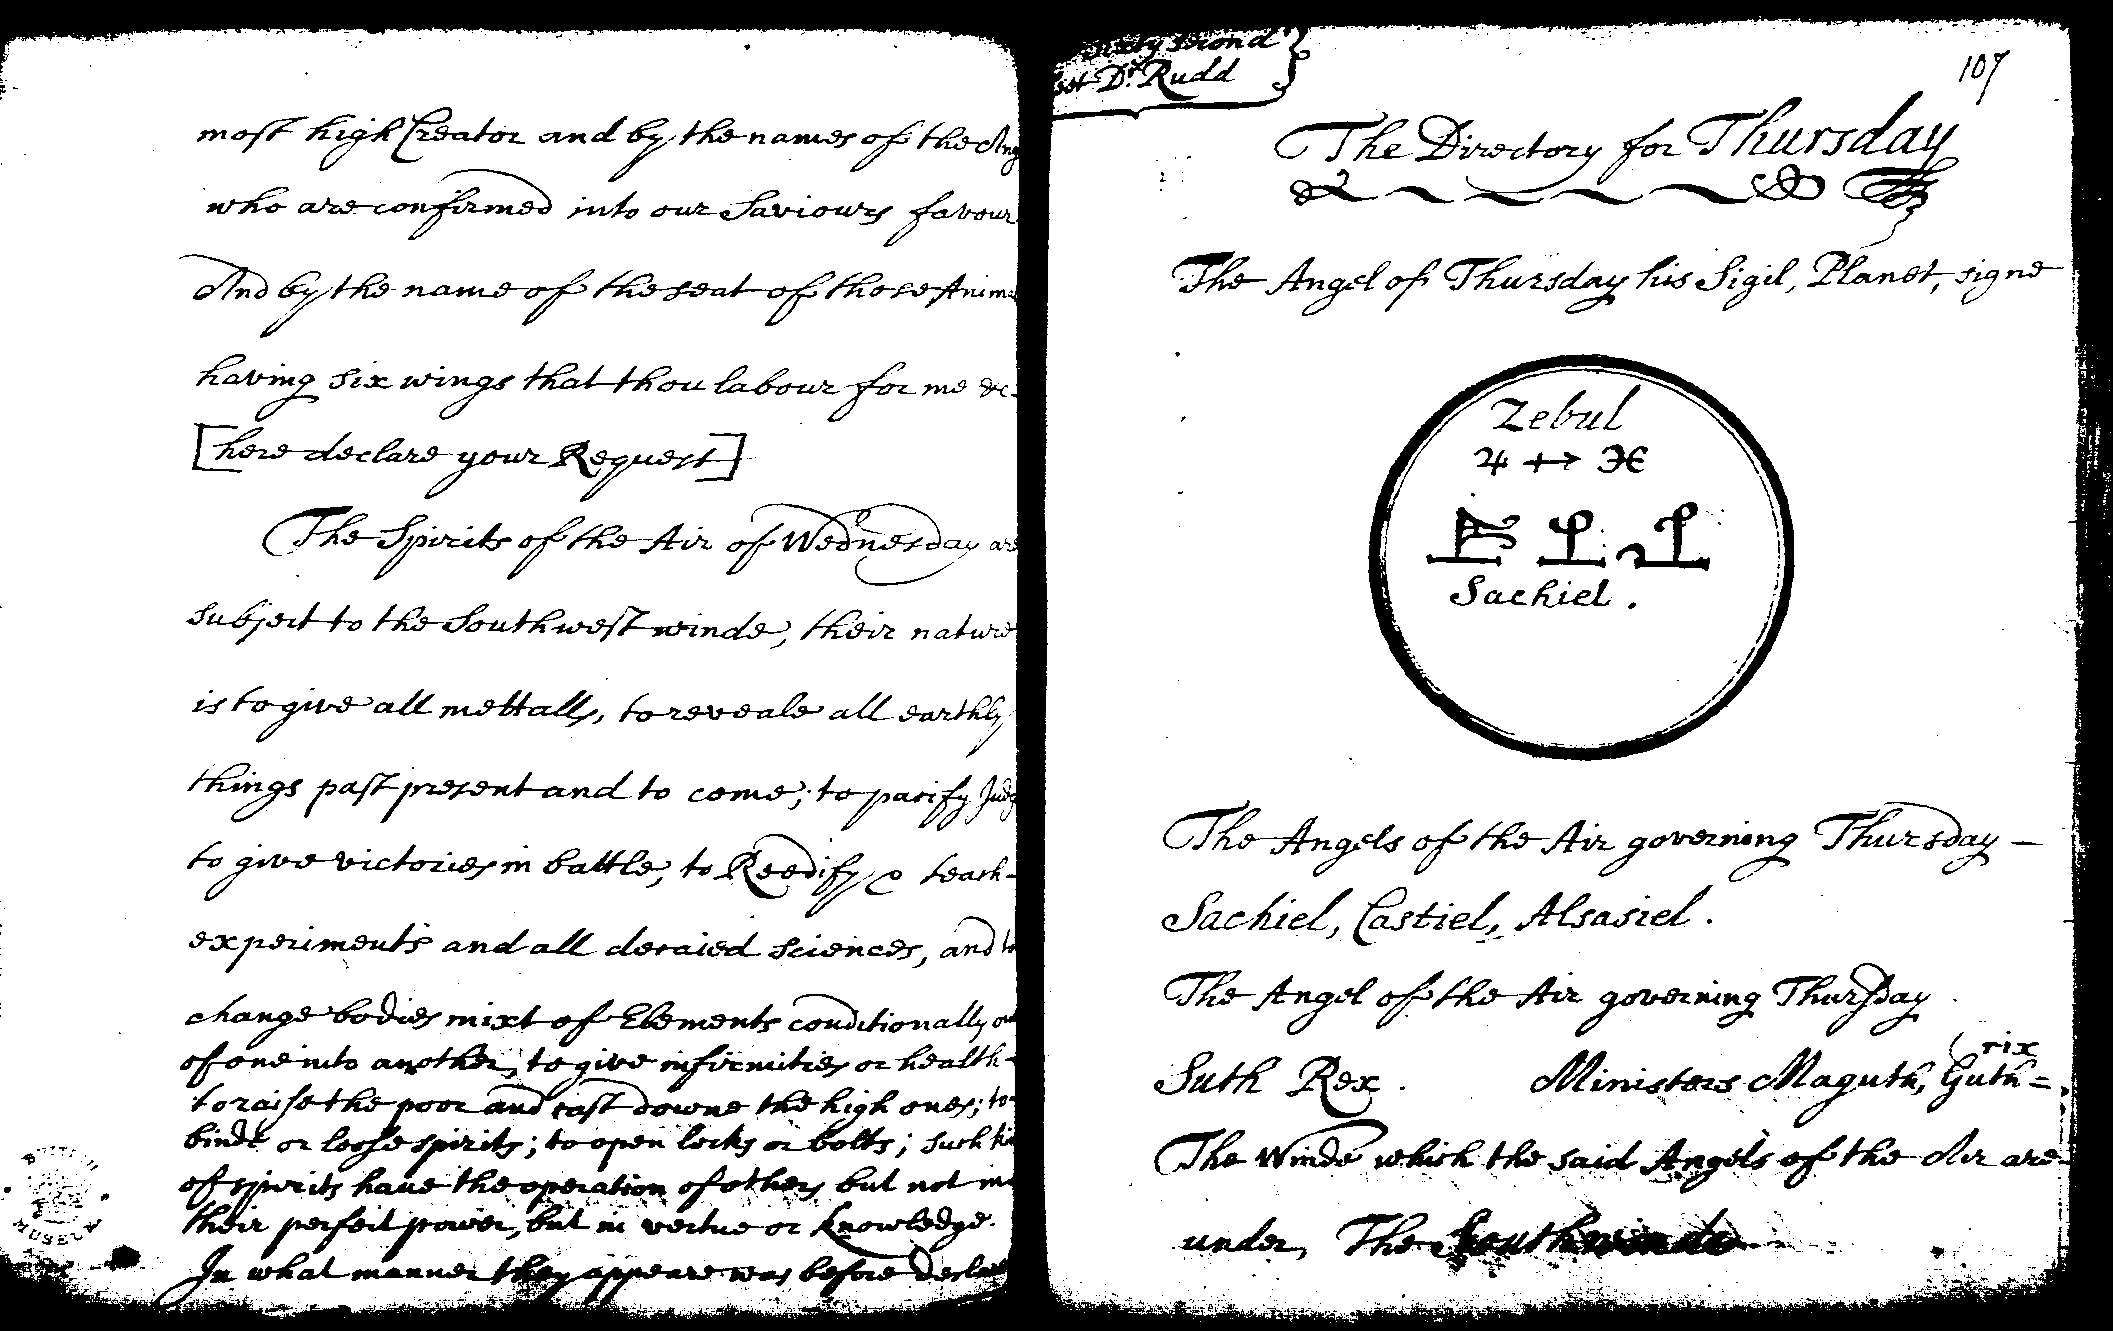 most high Creator and by the names of the Ang
who are confirmed into our Saviours favour
And by the name of the seat of those Anima
having six wings that thou labour for me &c
[here declare your Request]
The Spirits of the Air of Wednesday are
subject to the Southwest winde, their nature
is to give all mettalls, to reveale all earthly
things past present and to come; to pacify Judg
to give victories in battle, to Reedify & teach
experiments and all decaied sciences, and to
change bodies mixt of Elements conditionally out
of one into another, to give infirmities or health
to raise the poor and cast downe the high ones; to
binde or loose spirits; to open locks or bolts; such
of spirits have the operation of others but not in
their perfeit power, but in vertue or knowledge.
In what manner they appeare was before
second
Dr. Rudd
107
The Directory for Thursday
The Angel of Thursday his Sigil, Planet, signe
Zebul
♃ ♐ ♓
Sachiel.
The Angels of the Air governing Thursday
Sachiel, Castiel, Alsasiel.
The Angel of the Air governing Thursday
rix
Suth Rex. Ministers Maguth, Guth=
The Winde which the said Angels of the Air are
under, The Southwinde
BRITISH
MUSEUM